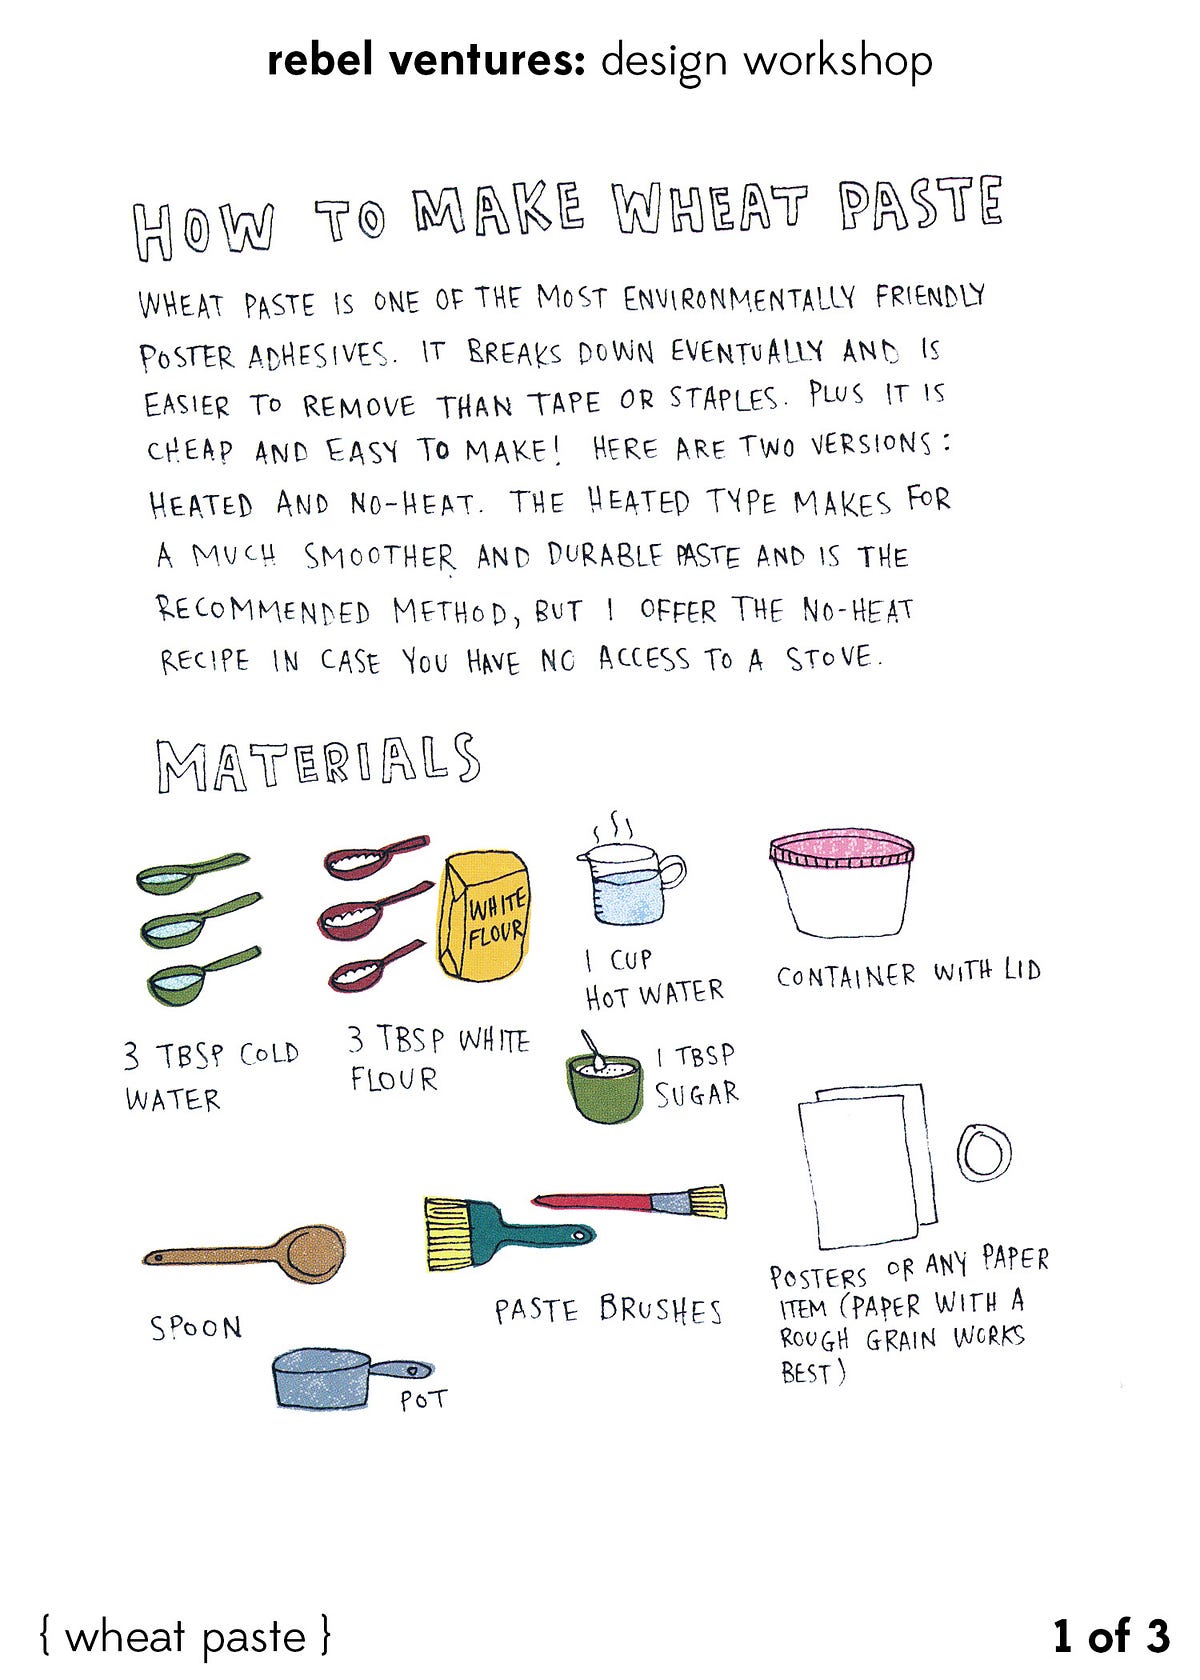 rebel ventures: design workshop
HOW TO MAKE WHEAT PASTE
WHEAT PASTE IS ONE OF THE MOST ENVIRONMENTALLY FRIENDLY
POSTER ADHESIVES. IT BREAKS DOWN EVENTUALLY AND IS
EASIER TO REMOVE THAN TAPE OR STAPLES. PLUS IT IS
CHEAP AND EASY TO MAKE! HERE ARE TWO VERSIONS:
HEATED AND NO-HEAT. THE HEATED TYPE MAKES FOR
A MUCH SMOOTHER AND DURABLE PASTE AND IS THE
RECOMMENDED METHOD, BUT I OFFER THE NO-HEAT
RECIPE IN CASE YOU HAVE NO ACCESS TO A STOVE.
MATERIALS
WHITE
FLOUR
3 TBSP COLD
WATER
3 TBSP WHITE
FLOUR
1 CUP
HOT WATER
CONTAINER WITH LID
1 TBSP
SUGAR
SPOON
PASTE BRUSHES
POSTERS OR ANY PAPER
ITEM (PAPER WITH A
ROUGH GRAIN WORKS
BEST)
POT
{ wheat paste }
1 of 3